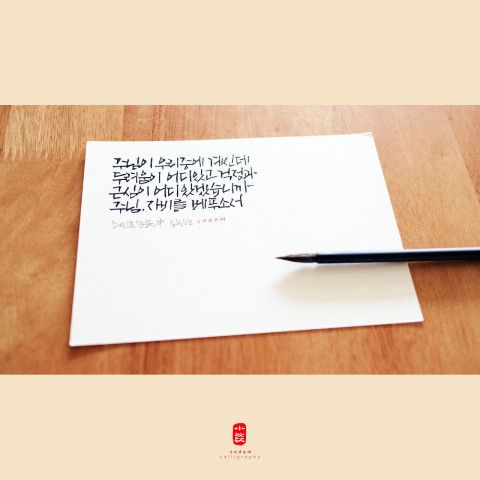 주님이 우리중에 계신데
두려움이 어디있고 걱정과
근심이 어디 있겠습니까
주님. 자비를 베푸소서
sodam
calligraphy